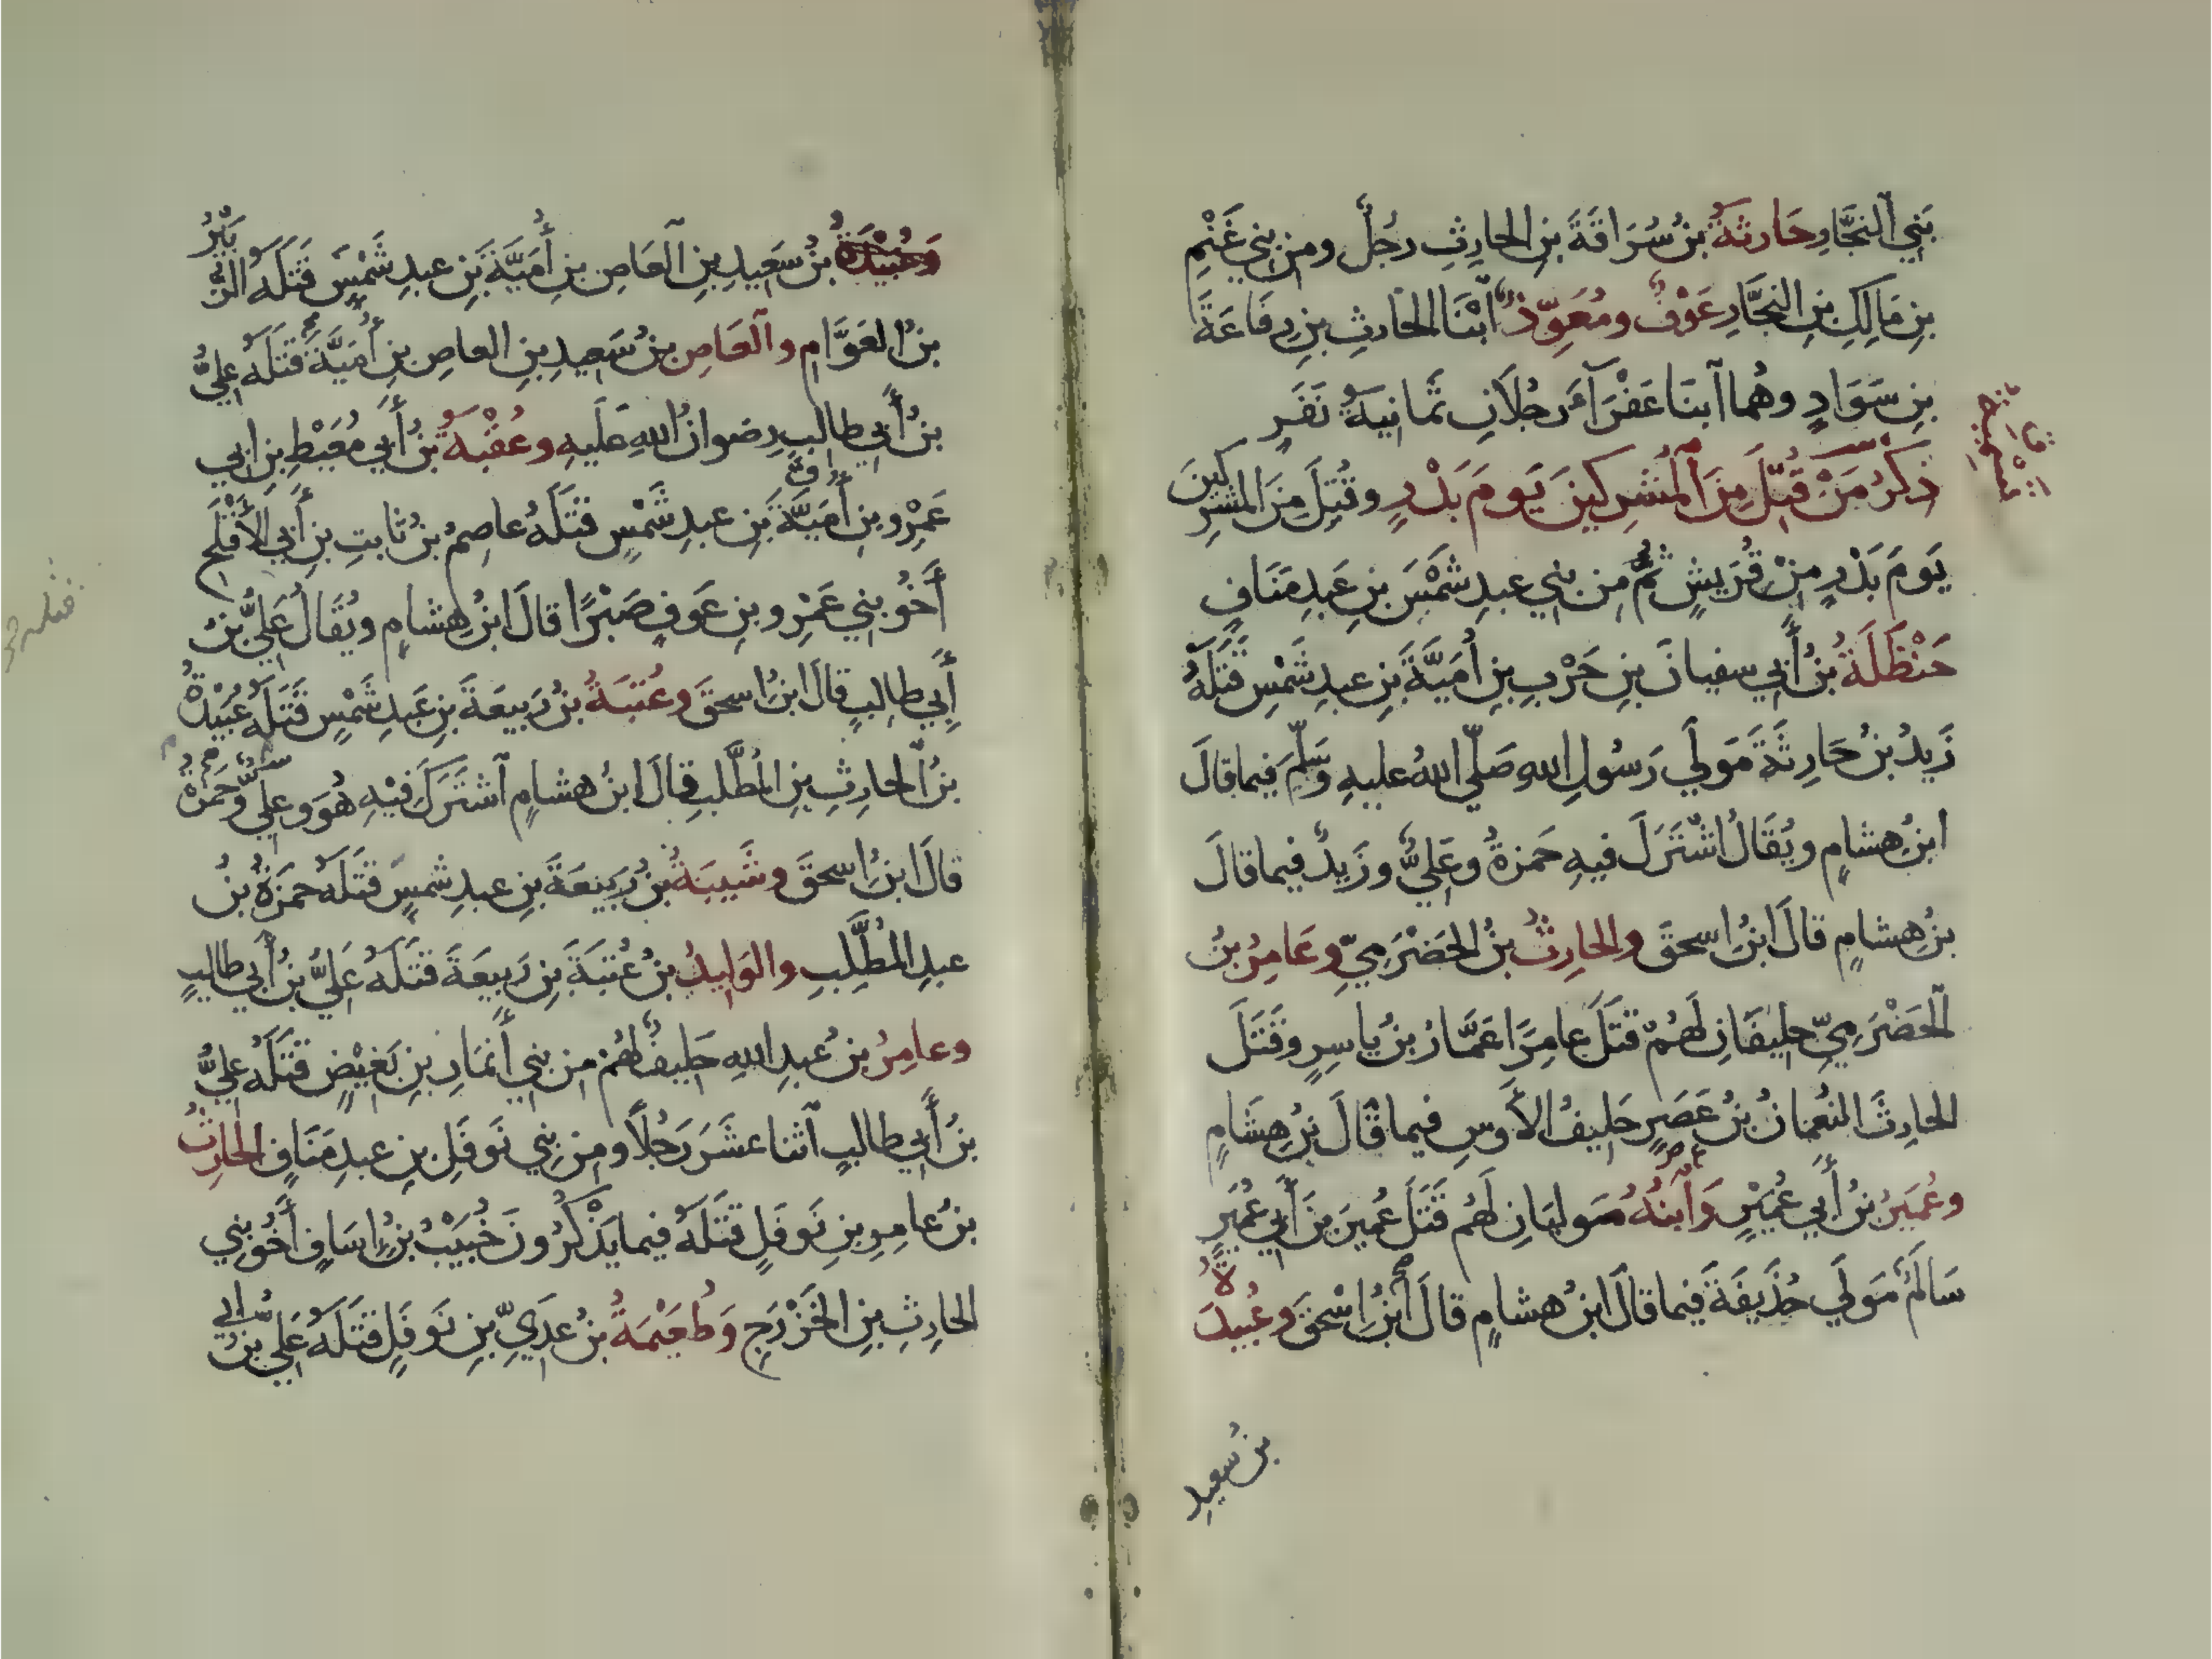 بَنِي ٱلنجَّارِ حَارثةُ بنُ سُرَاقَةَ بنِ الحارِثِ رجُلٌ ومن بني غَنْمِ
بنِ مَالِكِ بنِ النجَّارِ عَوْفٌ ومُعَوِّذٌ ٱبْنَا الحارثِ بنِ رِفَاعَةَ
بنِ سَوَادٍ وهُما ٱبنَا عَفْرَآءَ رجُلَانِ ثَمانِيَةُ نَفَرٍ
ذِكرُ مَنْ قُتِلَ مِنَ ٱلْمُشرِكينَ يَومَ بَدْرٍ وقُتِلَ مِنَ المشرِكينَ
يَومَ بَدْرٍ مِنْ قُرَيشٍ ثُمَّ مِن بني عبدِ شَمْسِ بنِ عَبدِ مَنَافٍ
حَنْظَلَةُ بنُ أَبي سفيانَ بنِ حَرْبِ بنِ أُمَيَّةَ بنِ عبدِ شَمْسٍ قَتَلَهُ
زَيدُ بنُ حَارِثَةَ مَولَي رَسُولِ اللهِ صَلّي اللهُ عليهِ وَسَلّمَ فيما قالَ
ابنُ هِشامٍ ويُقَالُ اشْتَرَكَ فيهِ حَمزةُ وعَلِيٌّ وزَيدٌ فيما قالَ
بنُ هِشامٍ قالَ ابنُ اسحقَ والحارِثُ بنُ الحَضْرَمِيِّ وعَامِرُ بنُ
ٱلحَضْرَمِيِّ حلِيفَانِ لَهُمْ قَتَلَ عامِرًا عَمَّارُ بنُ يَاسِرٍ وقَتَلَ
الحارِثَ النعُمانُ بنُ عَصَرٍ حَلِيفُ الأَوسِ فيما قالَ بنُ هِشَامٍ
وعُمَيرُ بنُ أَبي عُمَيْرٍ وَٱبنُهُ مَولَيانِ لَهُم قَتَلَ عُميرَ بنَ أَبي عُمَيرٍ
سَالمٌ مَولَي حُذَيفَةَ فيما قالَ ابنُ هشامٍ قالَ ٱبنُ اِسْحقَ وعُبيدَةُ
بنُ سعيدِ
وَعُبَيْدَةُ بنُ سَعِيدِ بنِ ٱلعَاصِ بنِ أُمَيَّةَ بنِ عبدِ شَمْسٍ قَتَلَهُ الزبَيرُ
بنُ العَوَّامِ وٱلعَاصِ بنُ سَعِيدِ بنِ العاصِ بنِ أُمَيَّةَ قَتَلَهُ عليُّ
بنُ أَبي طالِبٍ رضوانُ اللهِ عَلَيهِ وعُقْبَةُ بنُ أَبي مُعَيْطِ بنِ ابي
عَمْرِو بنِ أُمَيَّةَ بنِ عبدِ شَمْسٍ قتَلَهُ عاصِمُ بنُ ثابتِ بنِ أَبي الأَقْلَحِ
أَخُو بني عَمْرِو بنِ عَوفٍ صَبْرًا قالَ ابنُ هِشامٍ ويُقَالُ عَلِيُّ بنُ
أَبِي طالِبٍ قالَ ابنُ اسحقَ وعُتبَةُ بنُ رَبِيعَةَ بنِ عَبدِ شَمْسٍ قَتَلَهُ عُبَيْدَةُ
بنُ الحارِثِ بنِ المُطَّلِبِ قالَ ابنُ هشامٍ ٱشتَرَكَ فيْهِ هُوَ وعليٌّ وحَمزةُ
قالَ ابنُ اسحقَ وشَيبَةُ بنُ رَبِيعَةَ بنِ عبدِ شمسٍ قَتَلَهُ حمَزةُ بنُ
عبدِ المُطَّلِبِ والوَلِيدُ بنُ عُتبَةَ بنِ رَبيعَةَ قَتَلَهُ عَلِيُّ بنُ أَبي طالبٍ
وعامِرُ بنُ عبدِ اللهِ حَلِيفٌ لهُمْ مِن بني أَنمَارِ بنِ بَغِيْضٍ قَتَلَهُ عليُّ
بنُ أَبي طالبٍ ٱثنا عشَرَ رَجُلًا ومِن بني نَوفَلِ بنِ عبدِ مَنَافٍ الحارِثُ
بنُ عامِرِ بنِ نَوفَلٍ قَتَلَهُ فيما يَذْكُرُونَ خُبَيْبُ بنُ اِسَافٍ أَخُو بني
الحارِثِ بنِ الخَزْرَجِ وَطُعَيْمَةُ بنُ عدِيِّ بنِ نَوفَلٍ قَتَلَهُ عَلِي بنُ ابي